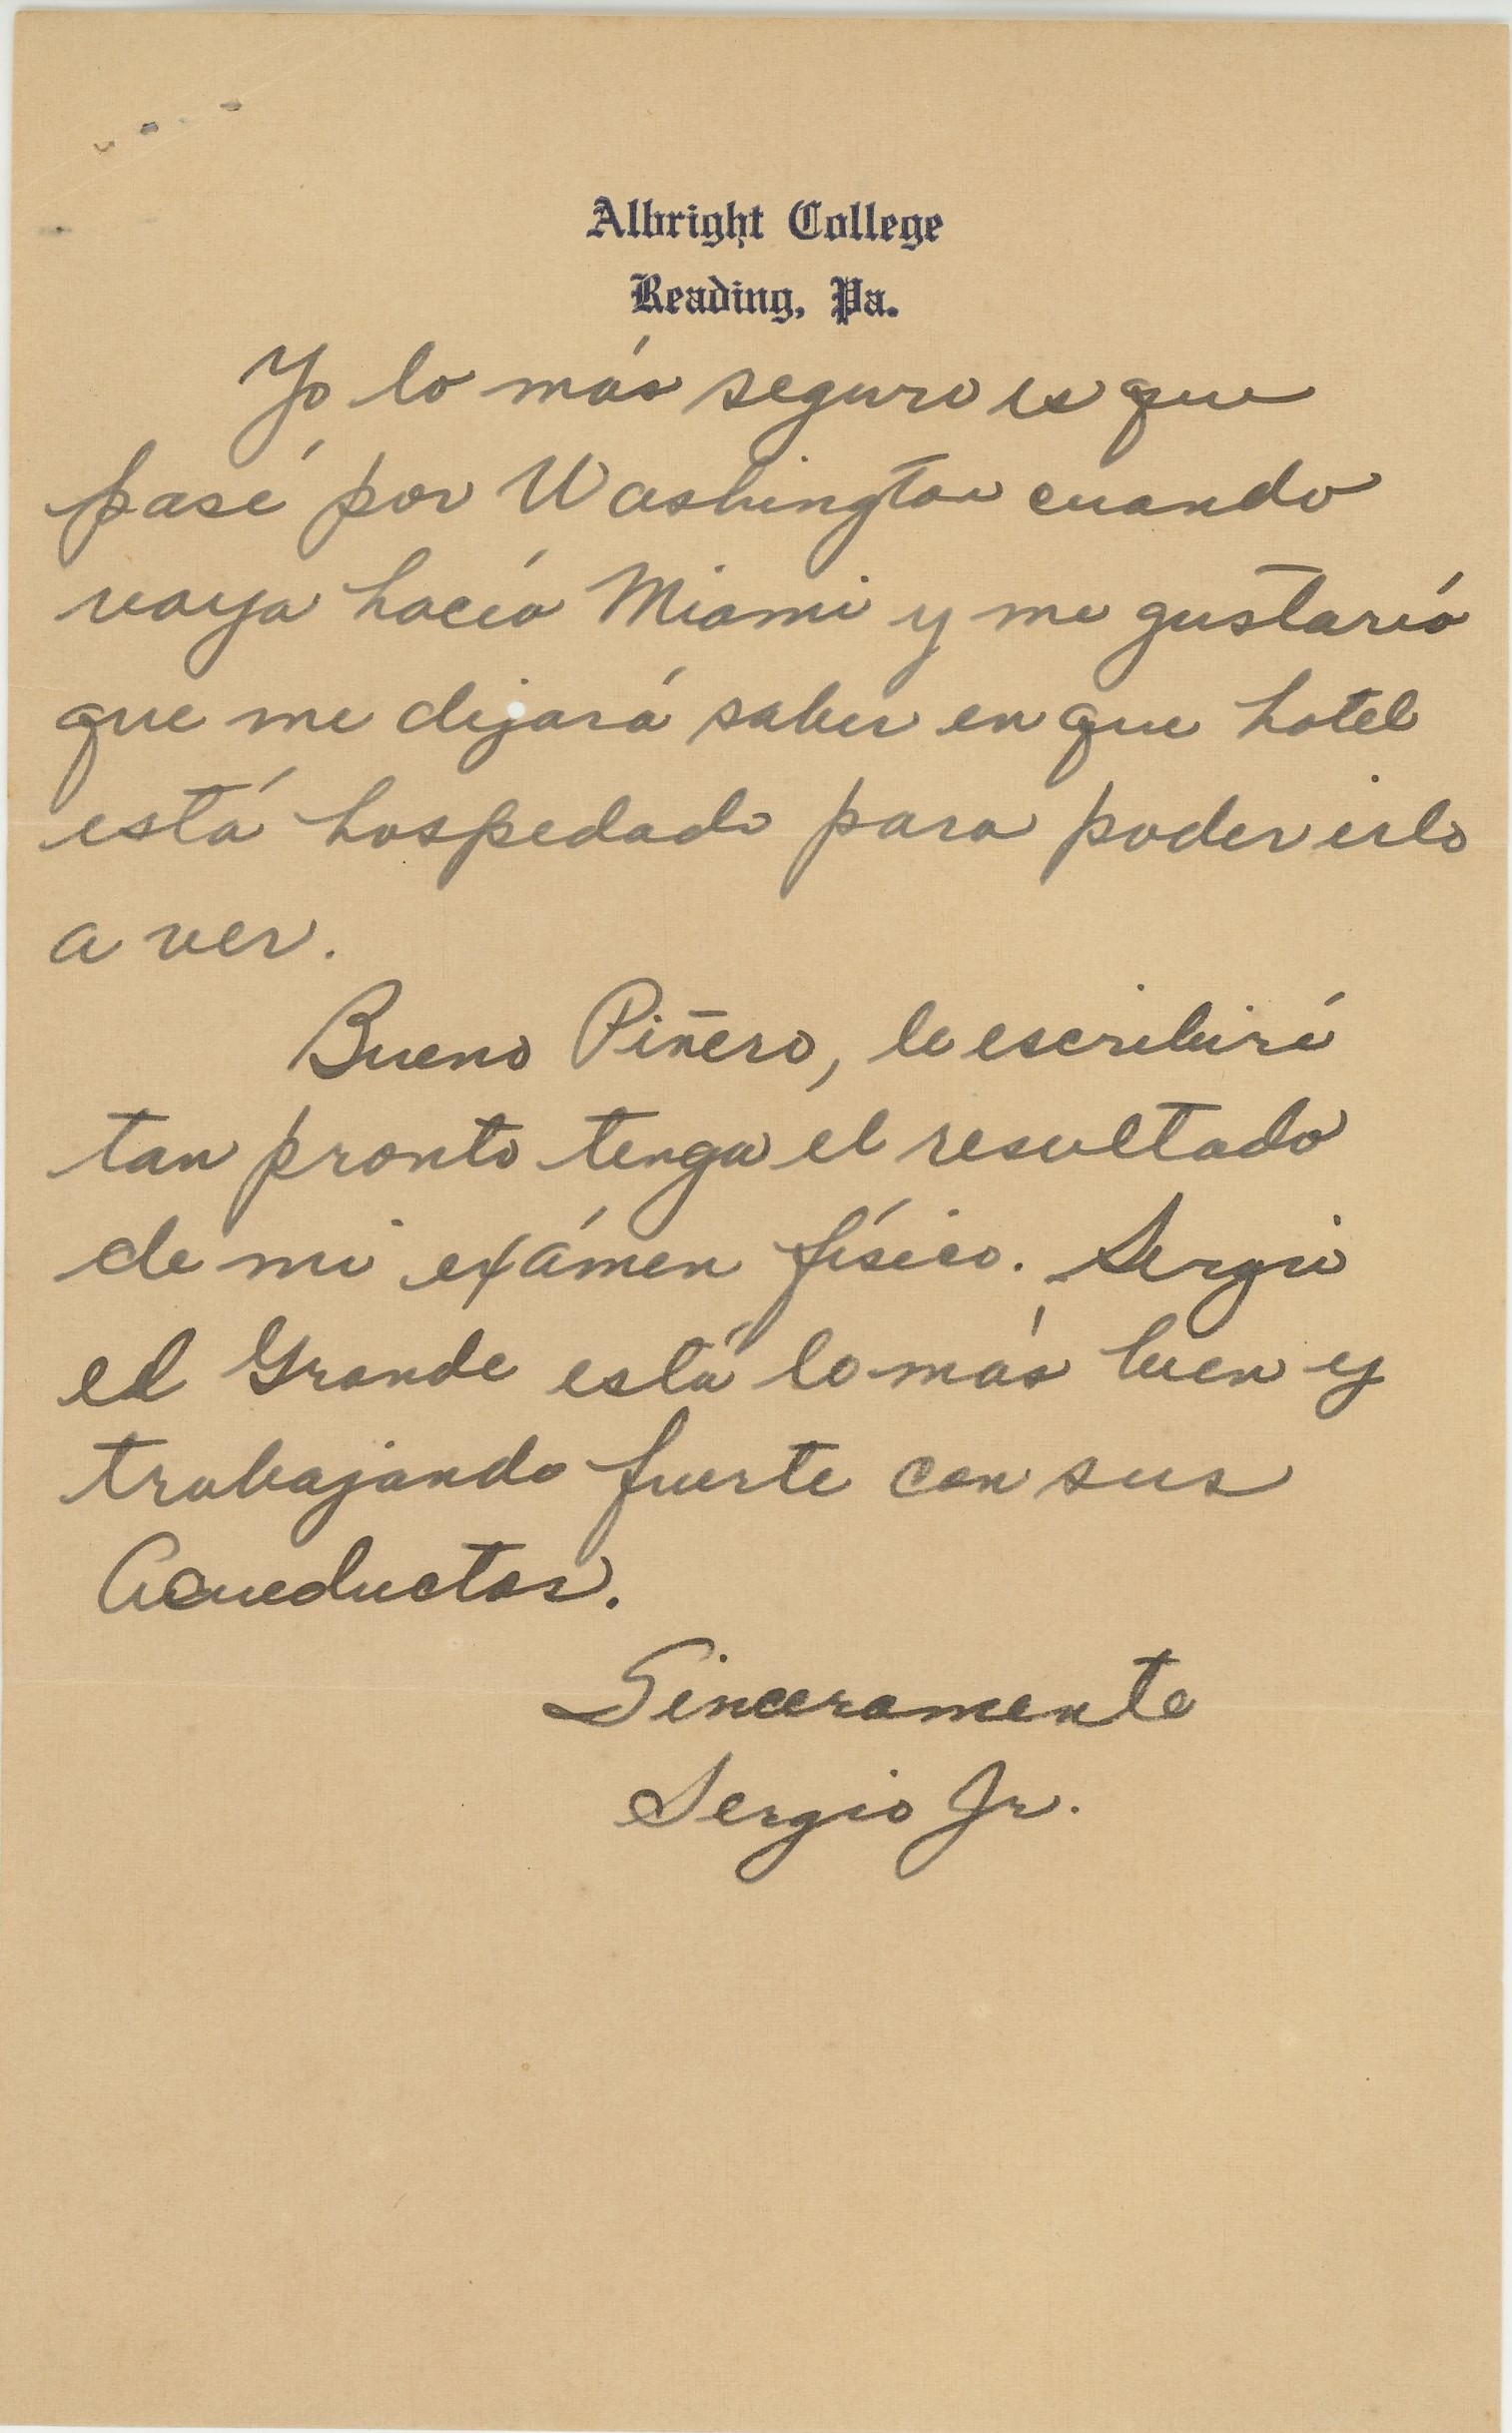 Albright College
Reading, Pa.
Yo lo más seguro es que
pasé por Washington cuando
vaya hacía Miami y me gustaría
que me dijará saber en que hotel
está hospedado para poder irlo
a ver.
Bueno Piñero, le escribiré
tan pronto tenga el resultado
de mi exámen físico. Sergio
el Grande está lo más bien y
trabajando fuerte con sus
Acueductos.
Sinceramente
Sergio Jr.